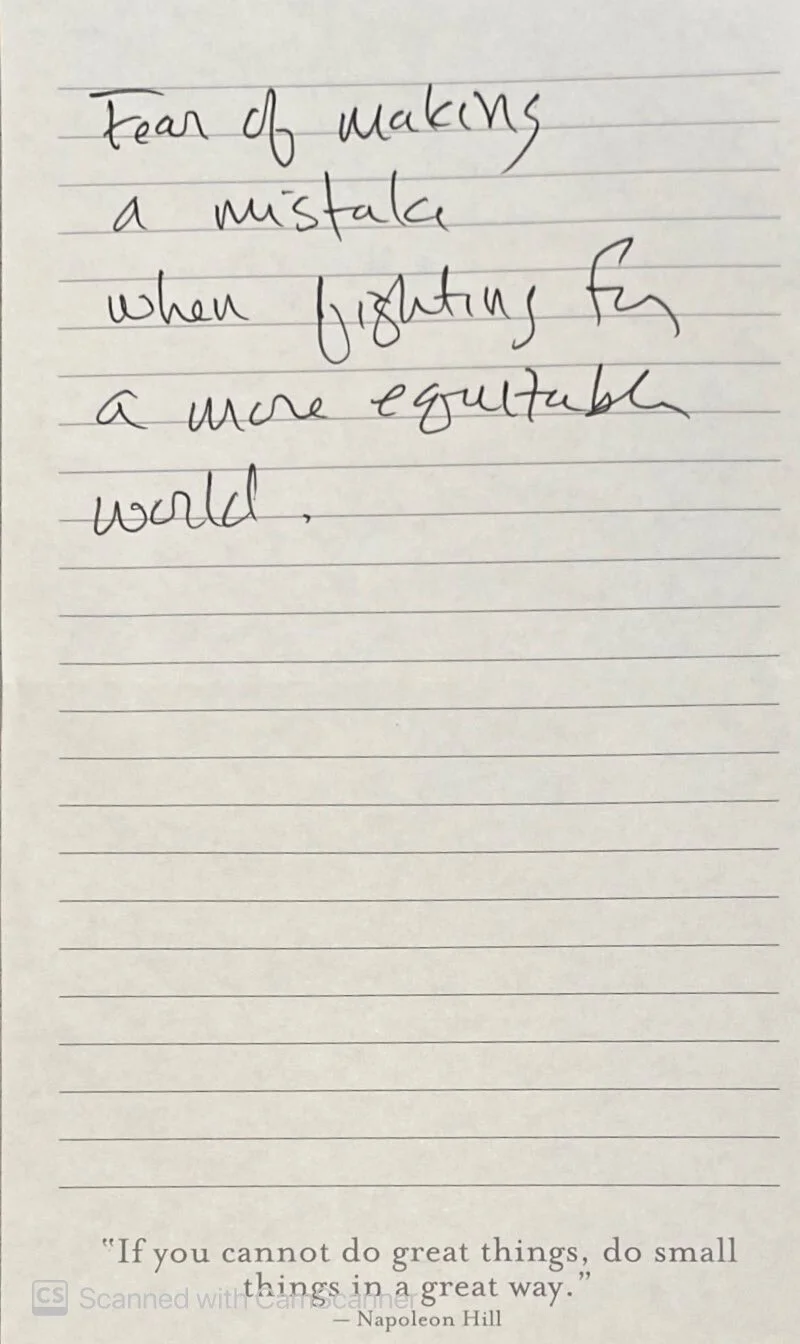 Fear of making
a mistake
when fighting for
a more equitable
world.
"If you cannot do great things, do small
things in a great way."
— Napoleon Hill
CS Scanned with CamScanner